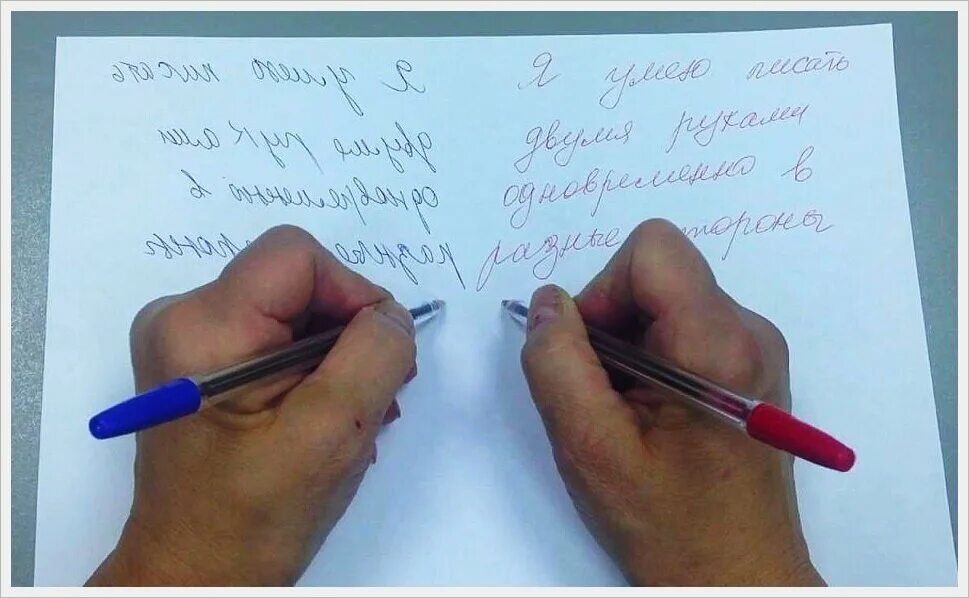 Я умею писать
двумя руками
одновременно в
разные стороны
Я умею писать
двумя руками
одновременно в
разные